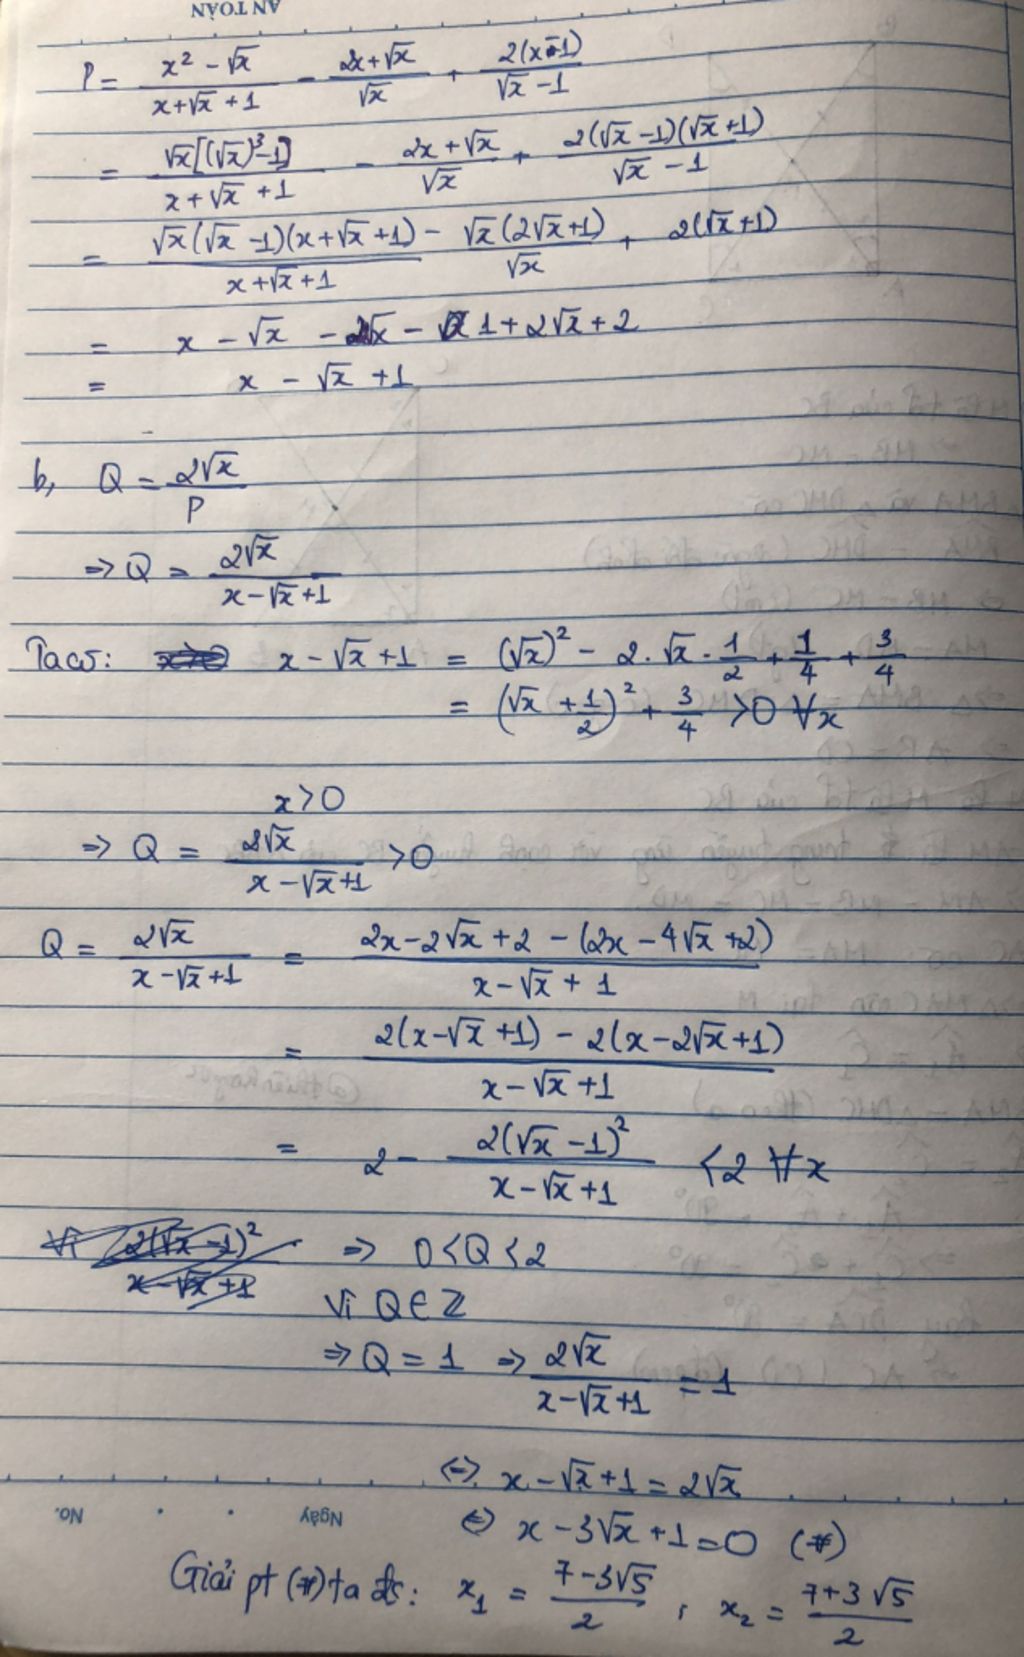 AN TOÀN
P = \frac{x^2 - \sqrt{x}}{x + \sqrt{x} + 1} - \frac{2x + \sqrt{x}}{\sqrt{x}} + \frac{2(x - 1)}{\sqrt{x} - 1}
= \frac{\sqrt{x}[(\sqrt{x})^3 - 1]}{x + \sqrt{x} + 1} - \frac{2x + \sqrt{x}}{\sqrt{x}} + \frac{2(\sqrt{x} - 1)(\sqrt{x} + 1)}{\sqrt{x} - 1}
= \frac{\sqrt{x}(\sqrt{x} - 1)(x + \sqrt{x} + 1)}{x + \sqrt{x} + 1} - \frac{\sqrt{x}(2\sqrt{x} + 1)}{\sqrt{x}} + 2(\sqrt{x} + 1)
= x - \sqrt{x} - 2\sqrt{x} - 1 + 2\sqrt{x} + 2
= x - \sqrt{x} + 1
b, Q = \frac{2\sqrt{x}}{P}
⇒ Q = \frac{2\sqrt{x}}{x - \sqrt{x} + 1}
Ta có: x - \sqrt{x} + 1 = (\sqrt{x})^2 - 2.\sqrt{x}.\frac{1}{2} + \frac{1}{4} + \frac{3}{4}
= (\sqrt{x} + \frac{1}{2})^2 + \frac{3}{4} > 0 ∀x
x > 0
⇒ Q = \frac{2\sqrt{x}}{x - \sqrt{x} + 1} > 0
Q = \frac{2\sqrt{x}}{x - \sqrt{x} + 1} = \frac{2x - 2\sqrt{x} + 2 - (2x - 4\sqrt{x} + 2)}{x - \sqrt{x} + 1}
= \frac{2(x - \sqrt{x} + 1) - 2(x - 2\sqrt{x} + 1)}{x - \sqrt{x} + 1}
= 2 - \frac{2(\sqrt{x} - 1)^2}{x - \sqrt{x} + 1} < 2 ∀x
Vì \frac{2(\sqrt{x} - 1)^2}{x - \sqrt{x} + 1} ⇒ 0 < Q < 2
Vì Q ∈ ℤ
⇒ Q = 1 ⇒ \frac{2\sqrt{x}}{x - \sqrt{x} + 1} = 1
⇔ x - \sqrt{x} + 1 = 2\sqrt{x}
⇔ x - 3\sqrt{x} + 1 = 0 (#)
No. Ngày
Giải pt (#) ta đc: x_1 = \frac{7 - 3\sqrt{5}}{2} ; x_2 = \frac{7 + 3\sqrt{5}}{2}